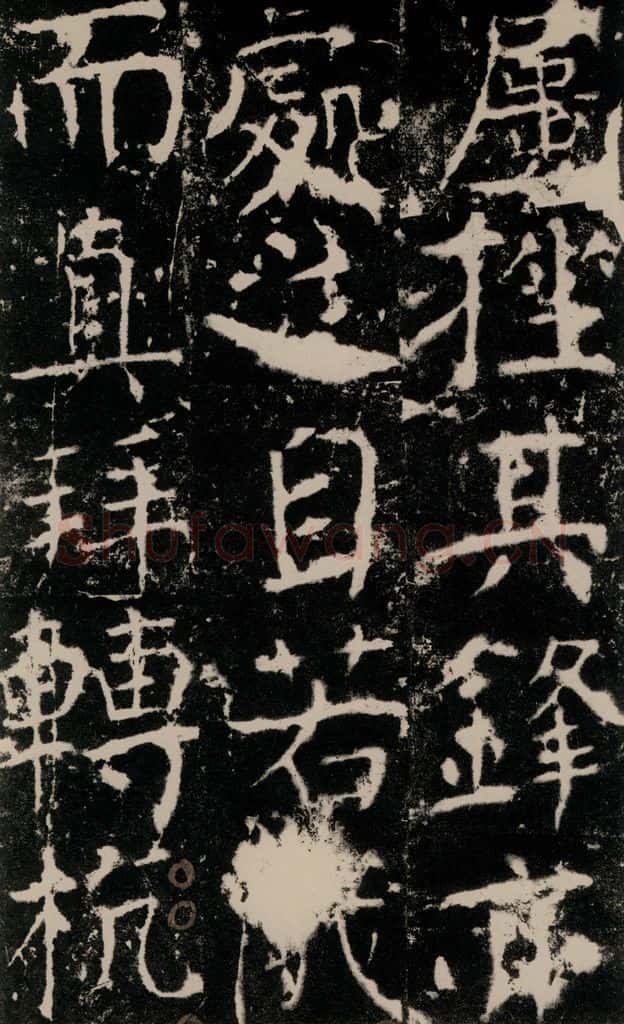 屢挫其鋒亦
處之自若
而真拜轉杭
Shufawang.CN